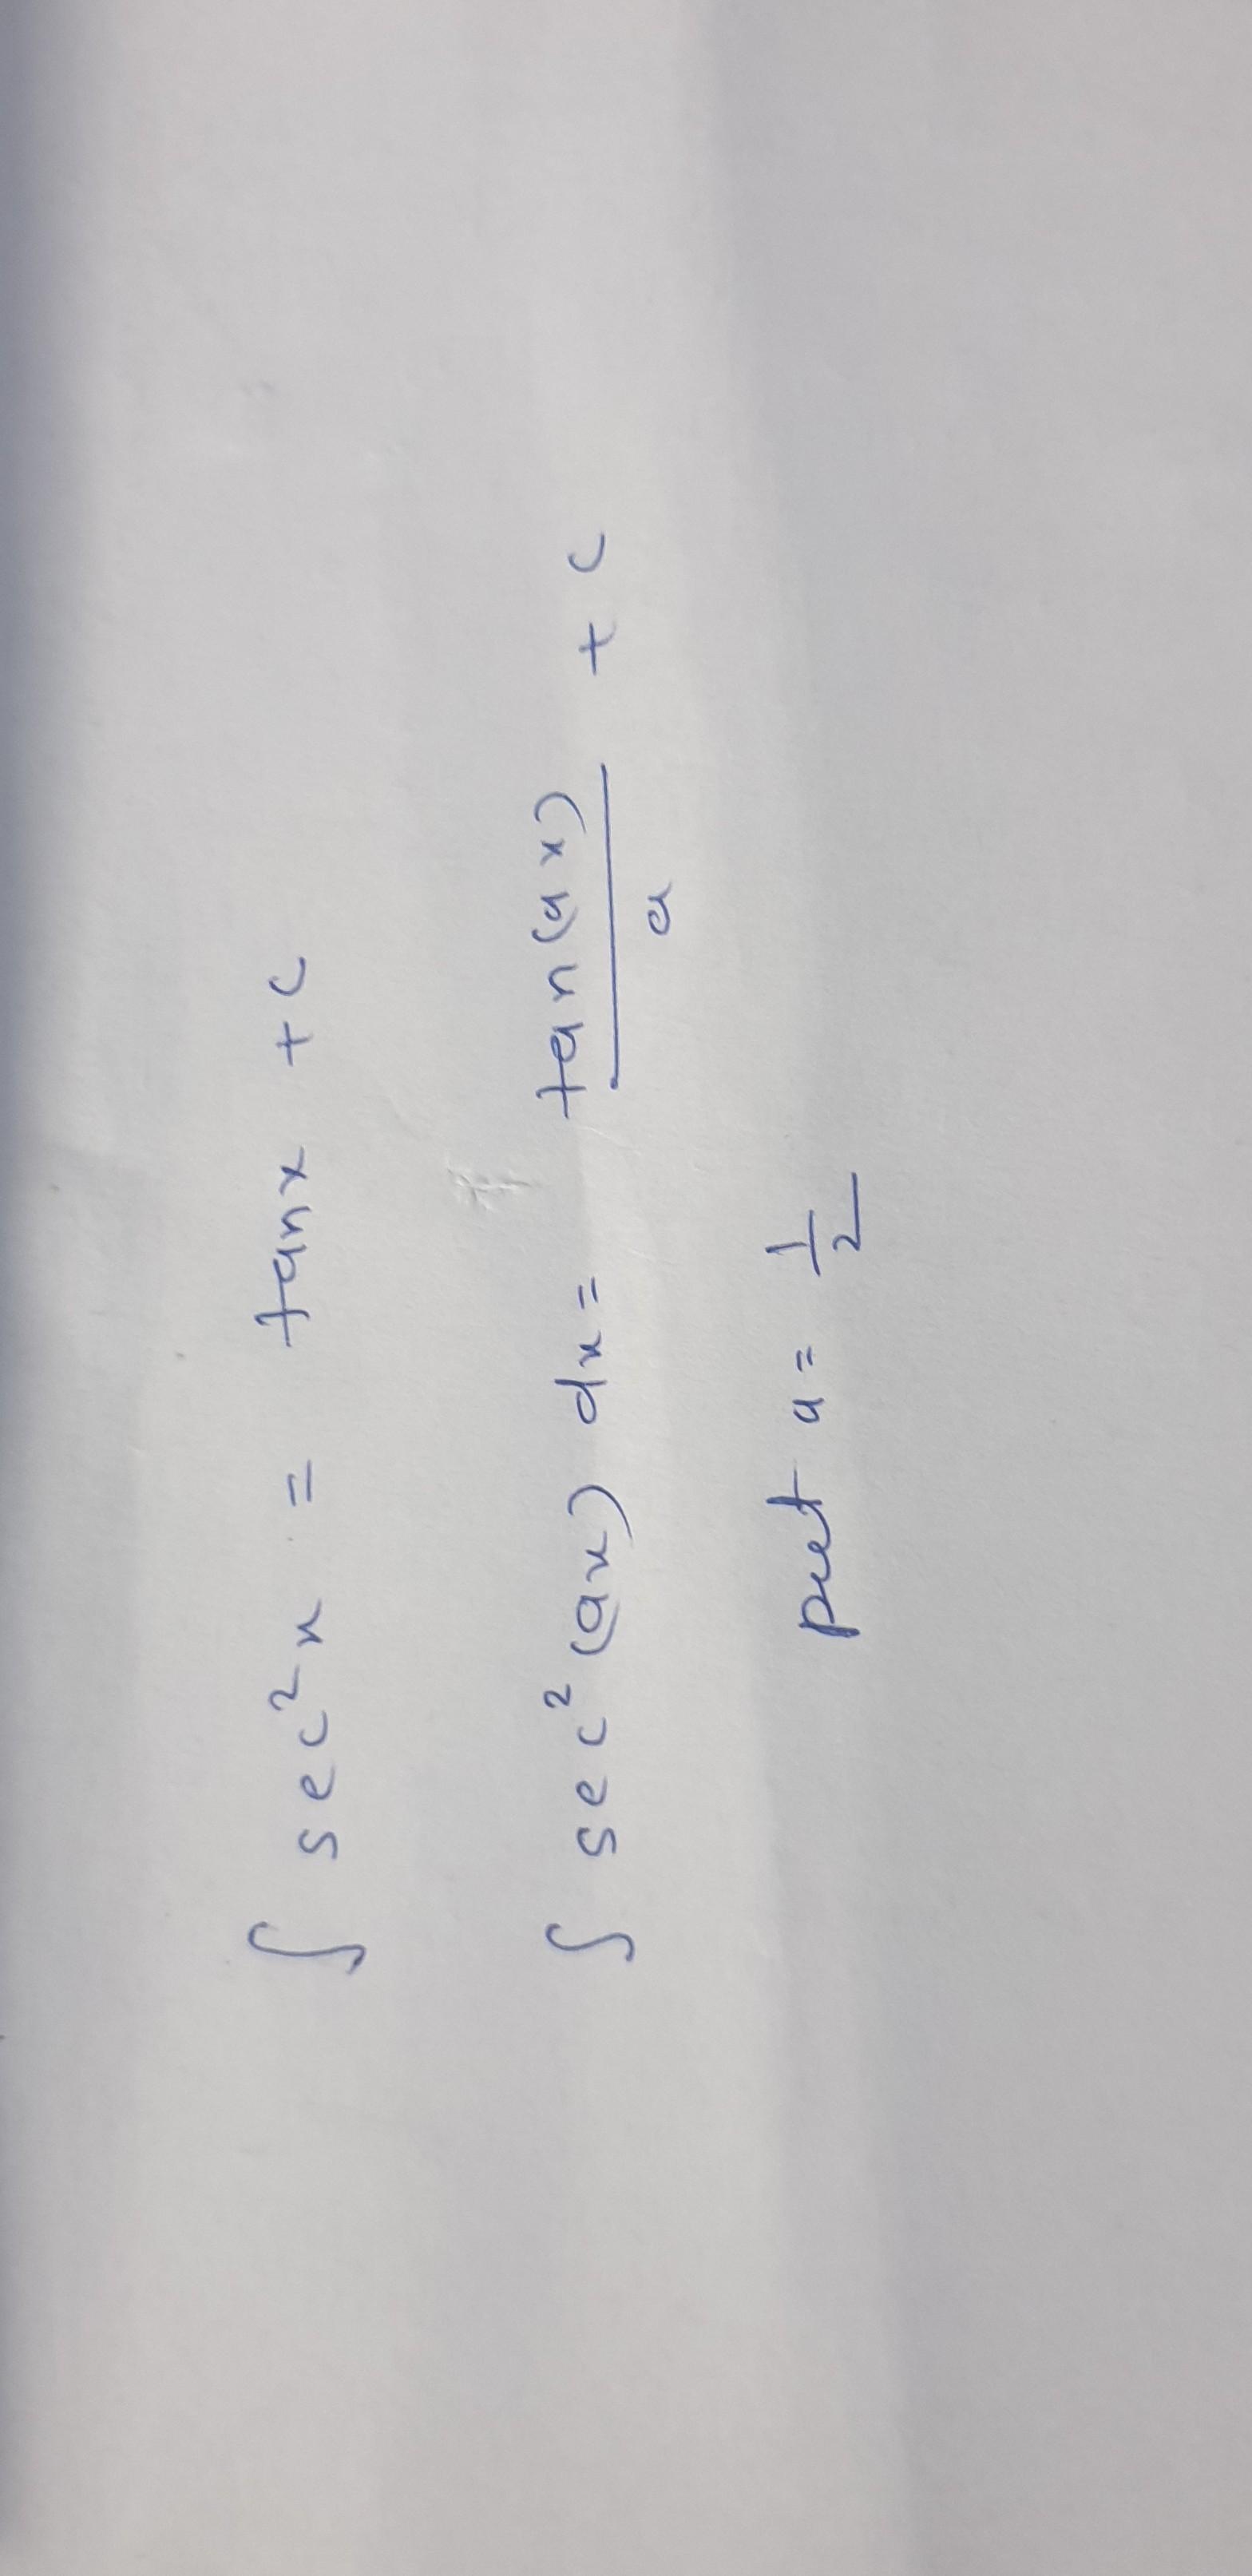 ∫ sec²x = tanx + c
∫ sec²(ax) dx = tan(ax)/a + c
put a = 1/2